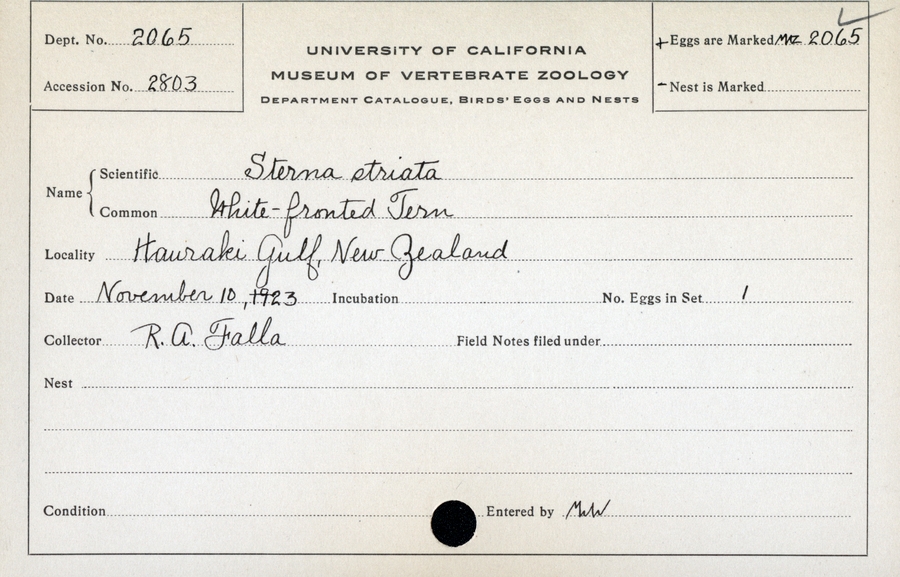 Dept. No. 2065
Accession No. 2803
UNIVERSITY OF CALIFORNIA
MUSEUM OF VERTEBRATE ZOOLOGY
DEPARTMENT CATALOGUE, BIRDS' EGGS AND NESTS
+ Eggs are Marked MVZ 2065
- Nest is Marked
Name { Scientific Sterna striata
Common White-fronted Tern
Locality Hauraki Gulf, New Zealand
Date November 10, 1923 Incubation No. Eggs in Set 1
Collector R. A. Falla Field Notes filed under
Nest
Condition Entered by